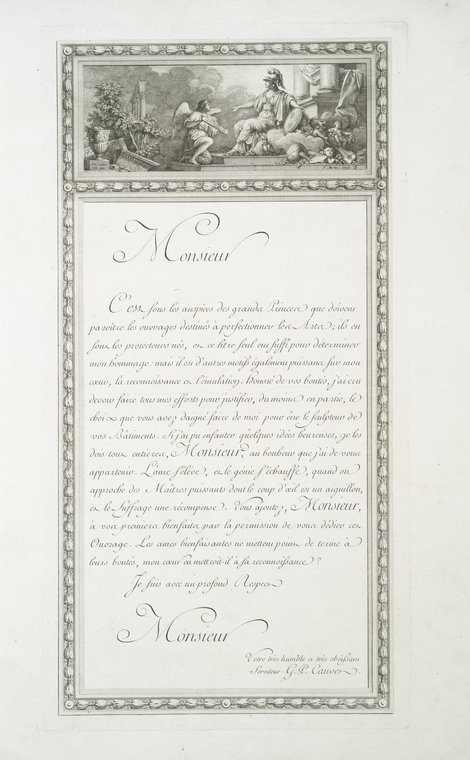 Monsieur
C'est sous les auspices des grands Princes que doivent
paroître les ouvrages destinés à perfectionner les Arts; ils en
sont les protecteurs nés, et ce titre seul eut suffi pour déterminer
mon hommage: mais il est d'autres motifs également puissans sur mon
cœur, la reconnoissance et l'émulation. Honoré de vos bontés, j'ai cru
devoir faire tous mes efforts pour justifier, du moins en partie, le
choix que vous avez daigné faire de moi pour être le Sculpteur de
vos Bâtiments. Si j'ai pu enfanter quelques idées heureuses, je les
dois tous entieres, Monsieur, au bonheur que j'ai de vous
appartenir. L'ame s'éleve, et le génie s'échauffe, quand on
approche des Maîtres puissants dont le coup d'œil est un aiguillon,
et le Suffrage une récompense. Vous ajoutez, Monsieur,
à vos premiers bienfaits par la permission de vous dédier cet
Ouvrage. Les ames bienfaisantes ne mettent point de terme à
leurs bontés, mon cœur en mettroit-il à sa reconnoissance?
Je suis avec un profond Respect
Monsieur
Votre très humble et très obéissant
Serviteur G. P. Cauvet.